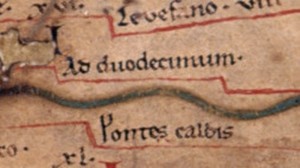 Levefano. VIII
Ad duodecimum.
Pontes caldis
co.
XI.